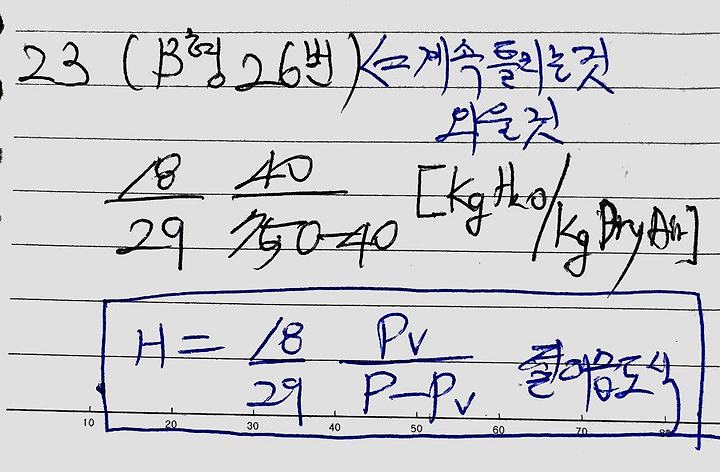 23 (B형 26번) <= 계속 틀리는것
외울것
18 40 [kg H2O/kg Dry Air]
29 750-40
H = 18 Pv 절대습도식
29 P-Pv
10 20 30 40 50 60 70 80